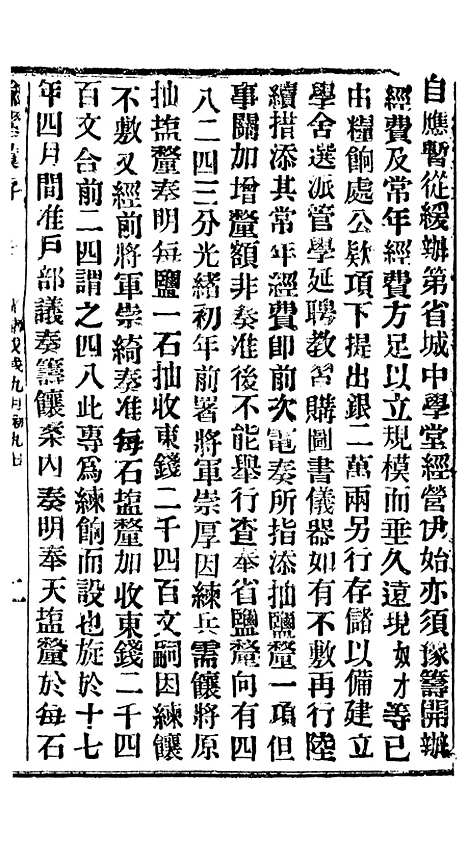 自應暫從緩辦第省城中學堂經營伊始亦須豫籌開辦
經費及常年經費方足以立規模而垂久遠現奴才等已
由糧餉處公欵項下提出銀二萬兩另行存儲以備建立
學舍選派管學延聘教習購圖書儀器如有不敷再行陸
續措添其常年經費卽前次電奏所指添抽鹽釐一項但
事關加增釐額非奏准後不能舉行查奉省鹽釐向有四
八二四三分光緒初年前署將軍崇厚因練兵需饟將原
抽塩釐奏明每鹽一石抽收東錢二千四百文嗣因練饟
不敷又經前將軍崇綺奏准每石塩釐加收東錢二千四
百文合前二四謂之四八此專為練餉而設也旋於十七
年四月間准戶部議奏籌饟案內奏明奉天塩釐於每石
戊戌九月初九日
二